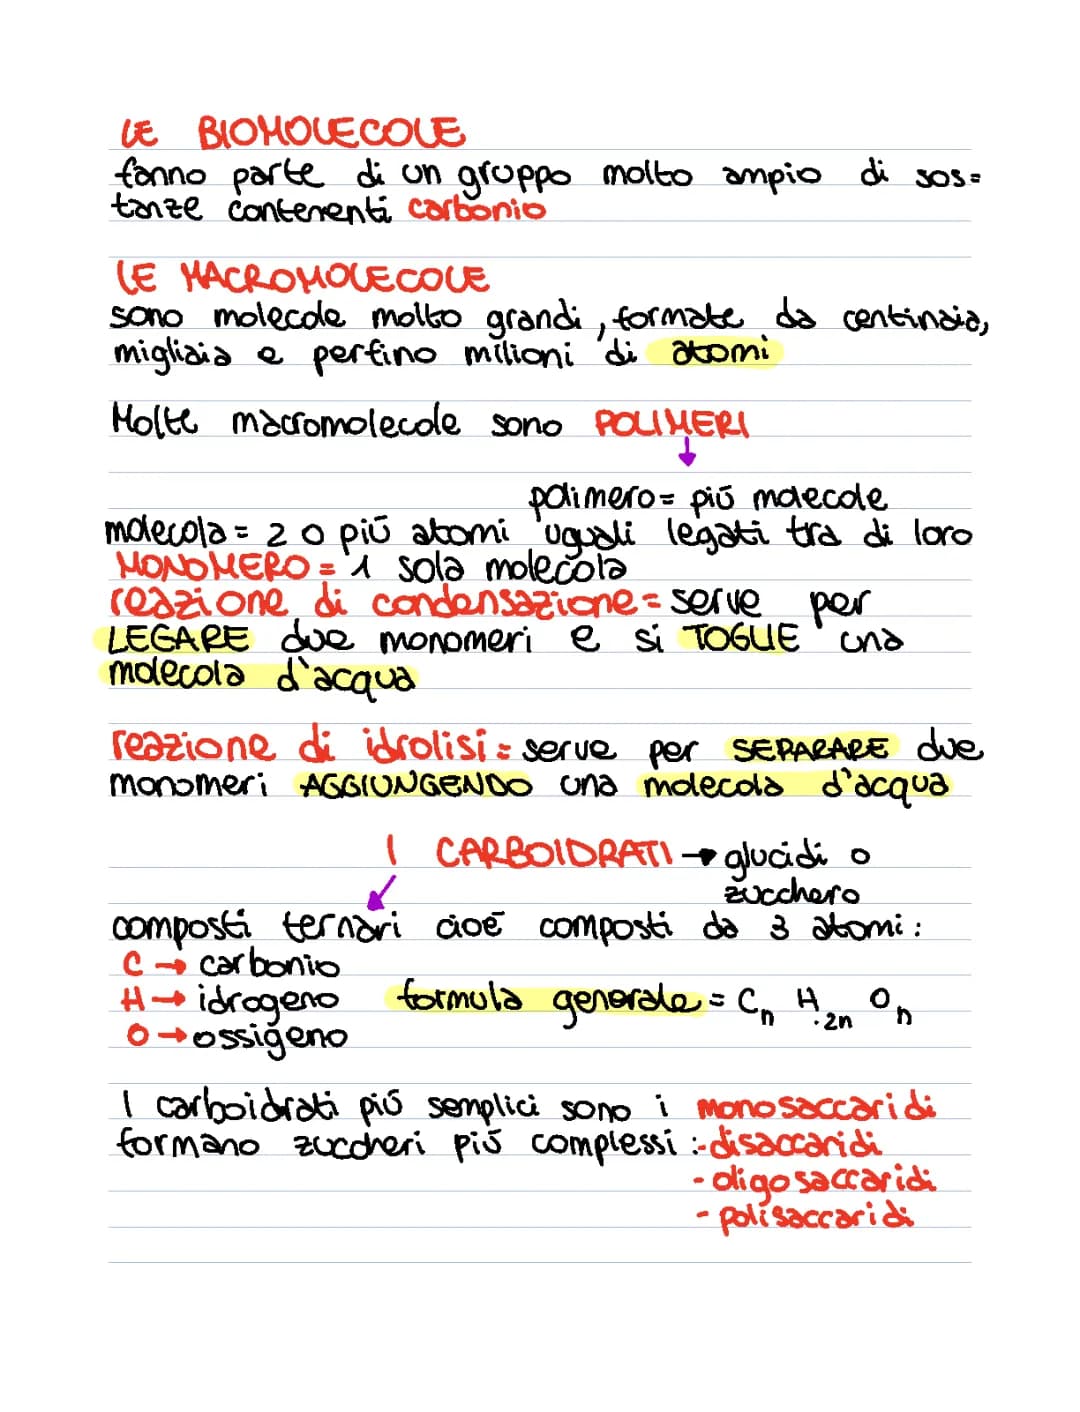 LE BIOMOLECOLE
fanno parte di un gruppo molto ampio di sos=
tanze contenenti carbonio
LE MACROMOLECOLE
sono molecole molto grandi, formate da centinaia,
migliaia e perfino milioni di atomi
Molte macromolecole sono POLIMERI
↓
polimero = più molecole
molecola = 2 o più atomi uguali legati tra di loro
MONOMERO = 1 sola molecola
reazione di condensazione = serve per
LEGARE due monomeri e si TOGLIE una
molecola d'acqua
reazione di idrolisi = serve per SEPARARE due
monomeri AGGIUNGENDO una molecola d'acqua
I CARBOIDRATI → glucidi o
zucchero
composti ternari cioè composti da 3 atomi:
C → carbonio
H → idrogeno formula generale = Cn H2n On
O → ossigeno
I carboidrati più semplici sono i monosaccaridi
formano zuccheri più complessi: - disaccaridi
- oligosaccaridi
- polisaccaridi